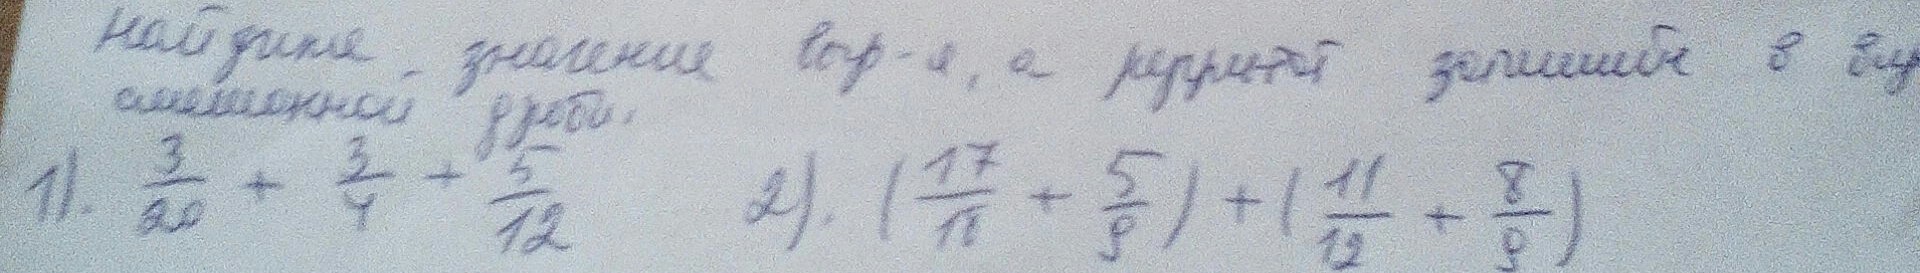 найдите значение выр-я, а результат запишите в вид
смешанной дроби.
1). 3/20 + 3/4 + 5/12 2). (17/18 + 5/9) + (11/12 + 8/9)